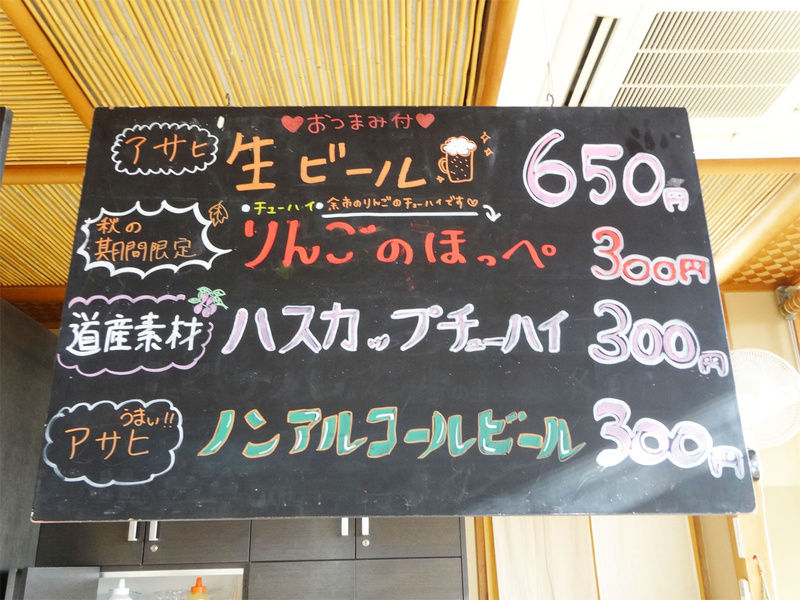 ♥おつまみ付♥
アサヒ 生ビール 650円
•チューハイ• 余市のりんごのチューハイです
秋の
期間限定 りんごのほっぺ 300円
道産素材 ハスカップチューハイ 300円
うまい!!
アサヒ ノンアルコールビール 300円